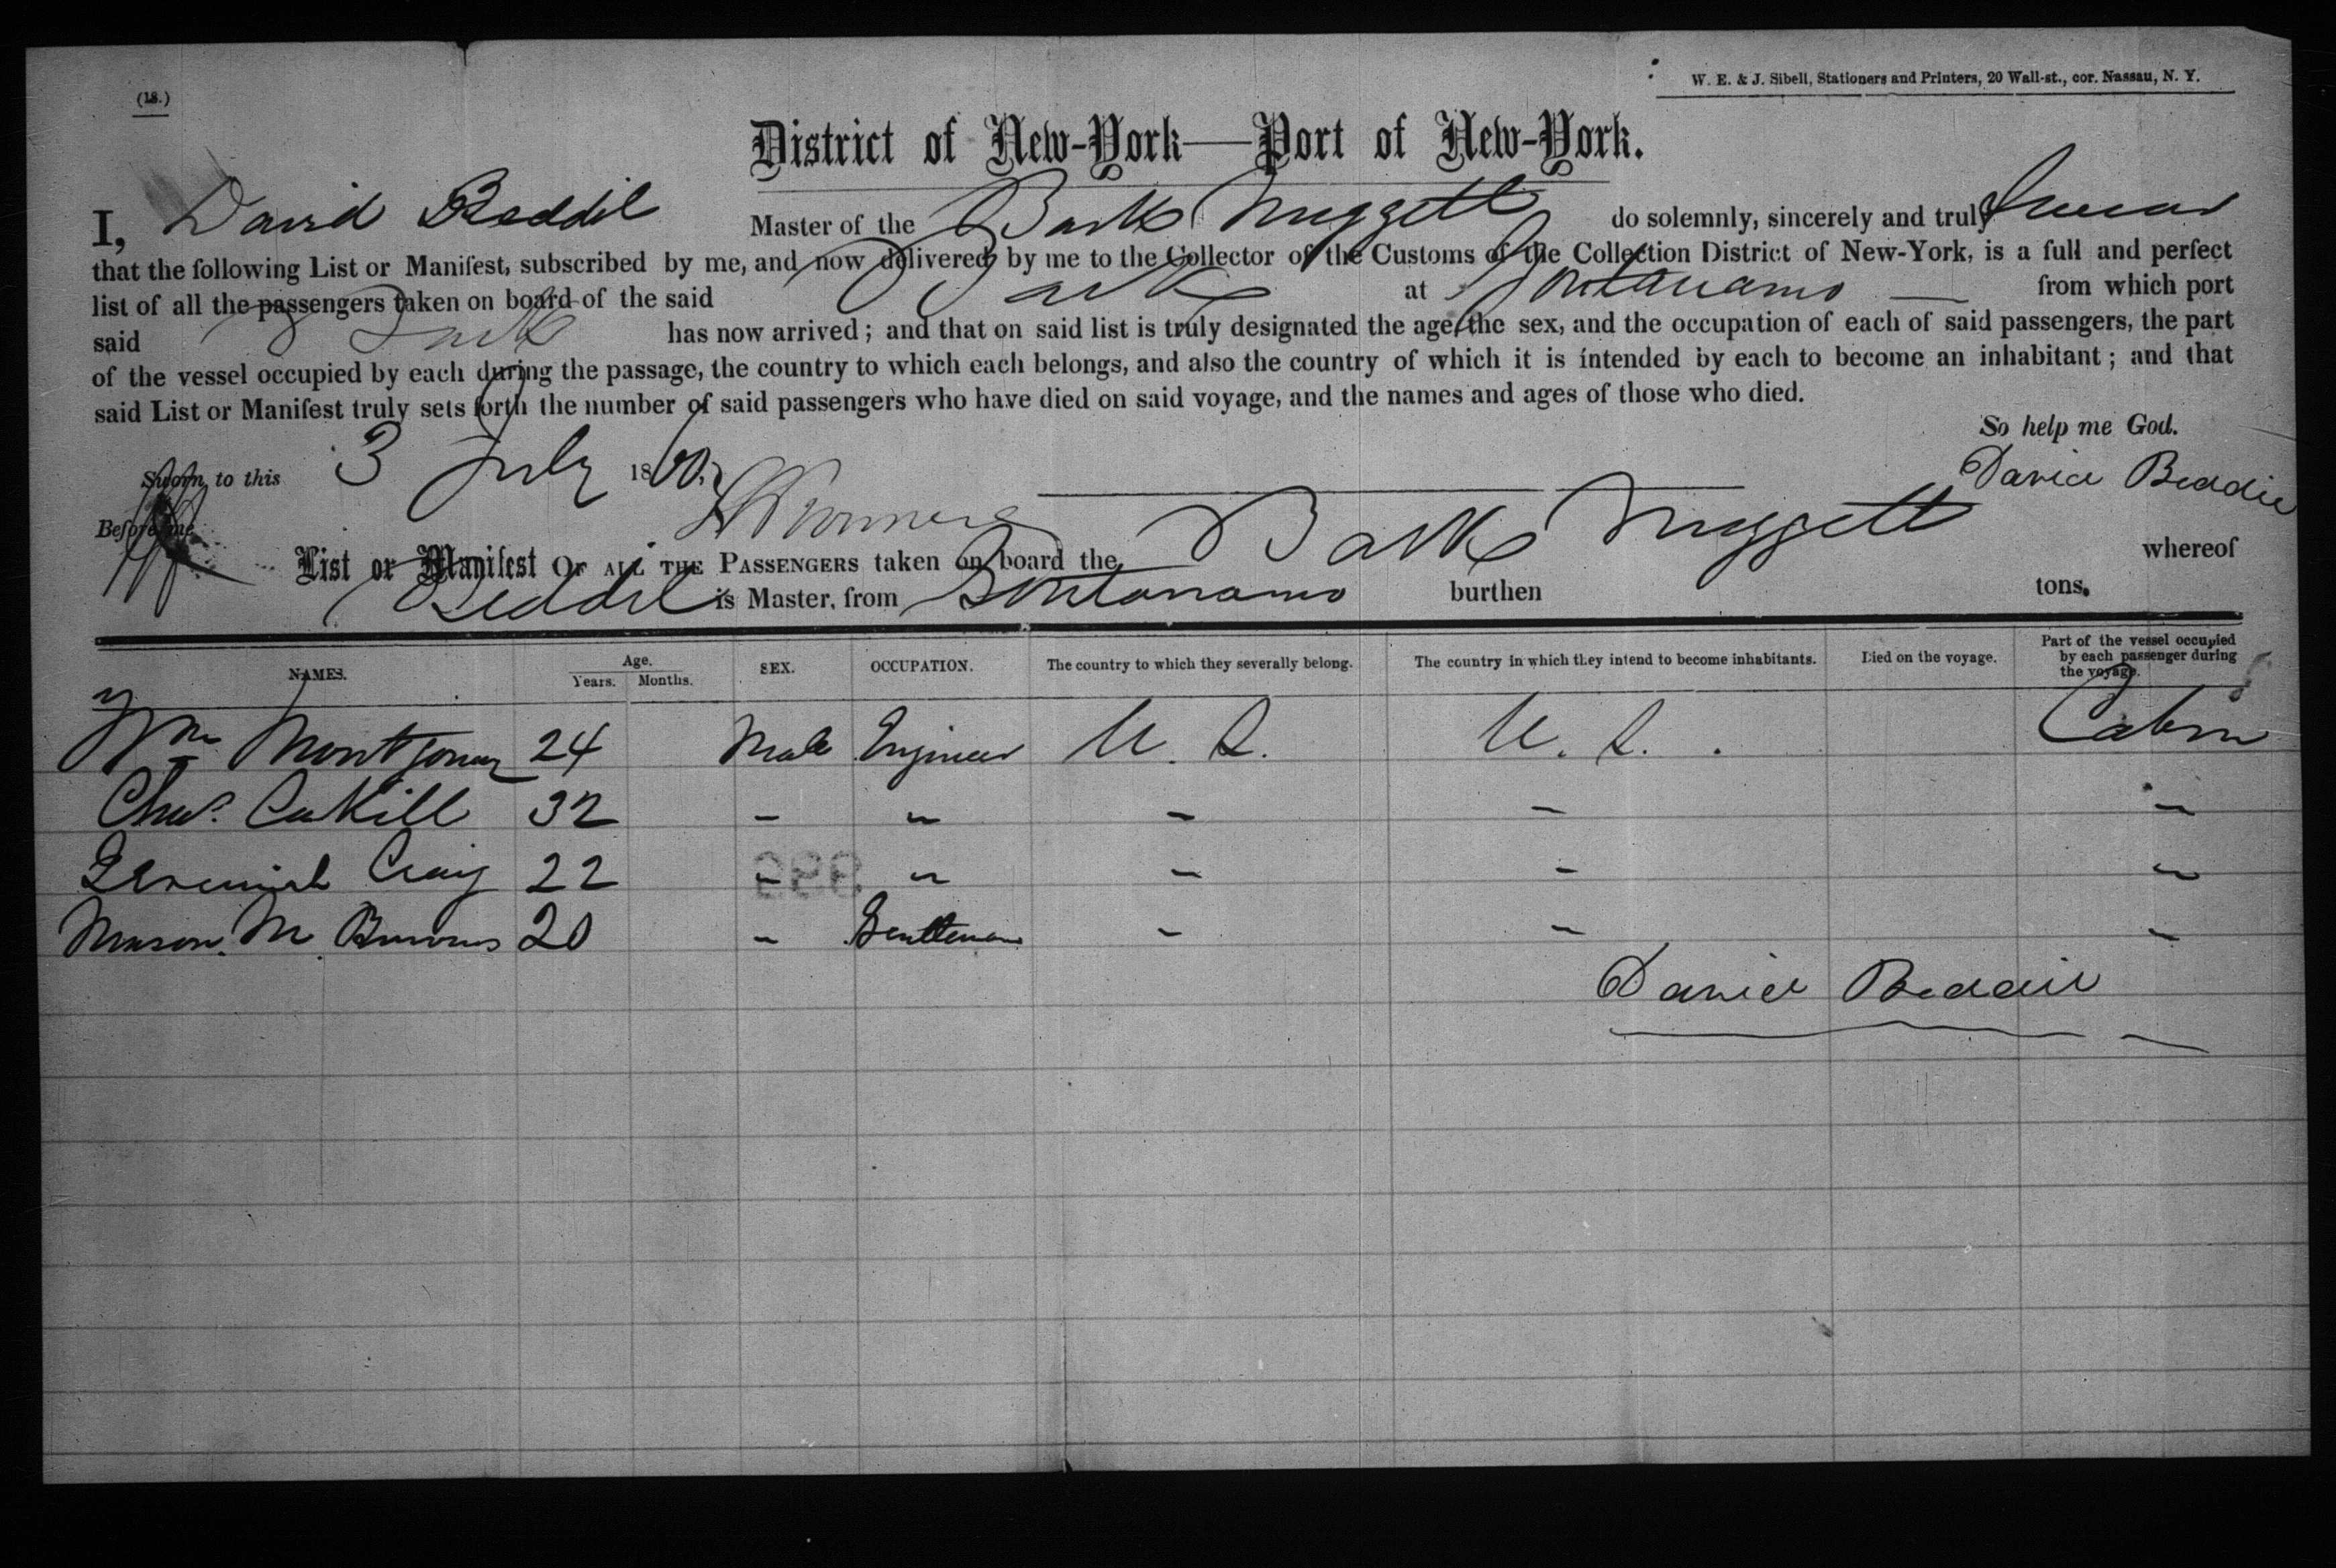 (18.)
W. E. & J. Sibell, Stationers and Printers, 20 Wall-st., cor. Nassau, N. Y.
District of New-York—Port of New-York.
I, David Beddil Master of the Bark Nuggett do solemnly, sincerely and truly swear
that the following List or Manifest, subscribed by me, and now delivered by me to the Collector of the Customs of the Collection District of New-York, is a full and perfect
list of all the passengers taken on board of the said Bark at from which port
said Bark has now arrived; and that on said list is truly designated the age, the sex, and the occupation of each of said passengers, the part
of the vessel occupied by each during the passage, the country to which each belongs, and also the country of which it is intended by each to become an inhabitant; and that
said List or Manifest truly sets forth the number of said passengers who have died on said voyage, and the names and ages of those who died.
So help me God.
Sworn to this 3 July 18
Before me
List or Manifest OF ALL THE PASSENGERS taken on board the Bark Nuggett whereof
Beddil is Master, from burthen tons.
NAMES. Age. Years. Months. SEX. OCCUPATION. The country to which they severally belong. The country in which they intend to become inhabitants. Died on the voyage. Part of the vessel occupied by each passenger during the voyage.
Wm Montgomery 24 Male Engineer U. S. U. S. Cabin
Chas. Cahill 32 - " - - "
Jeremiah Craig 22 - " - - "
Mason. M. 20 - Gentleman - - "